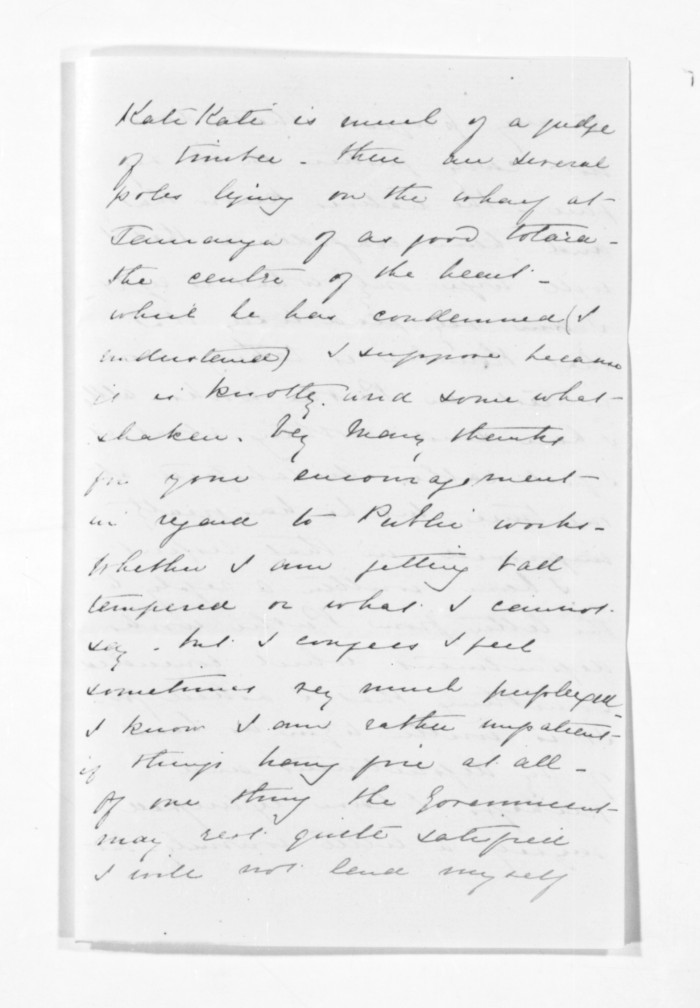 Kati Kati is much of a judge
of timber - there are several
poles lying on the wharf at
Tauranga of as good totara -
the centre of the heart -
which he has condemned (I
understand) I suppose because
it is knotty, and some what
shaken. Very Many thanks
for your encouragement
in regard to Public works -
Whether I am getting bad
tempered or what I cannot
say - but I confess I feel
sometimes very much perplexed -
I know I am rather impatient -
if things hang fire at all -
Of one thing the Government
may rest quite satisfied
I will not lend myself